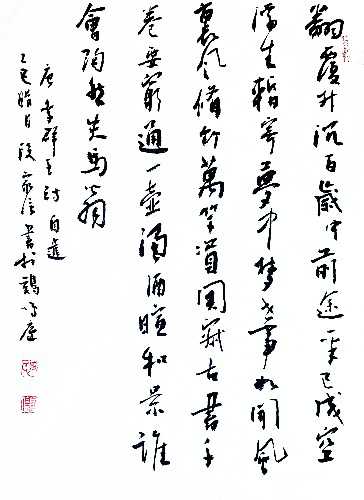 翻覆升沉百歲中前途一半已成空
浮生暫寄夢中夢世事如聞風
裏風脩竹萬竿資闃寂古書千
卷要窮通一壺濁酒暄和景誰
會陶然失馬翁
唐李群玉詩自遣
乙巳腊日段家信書於廬